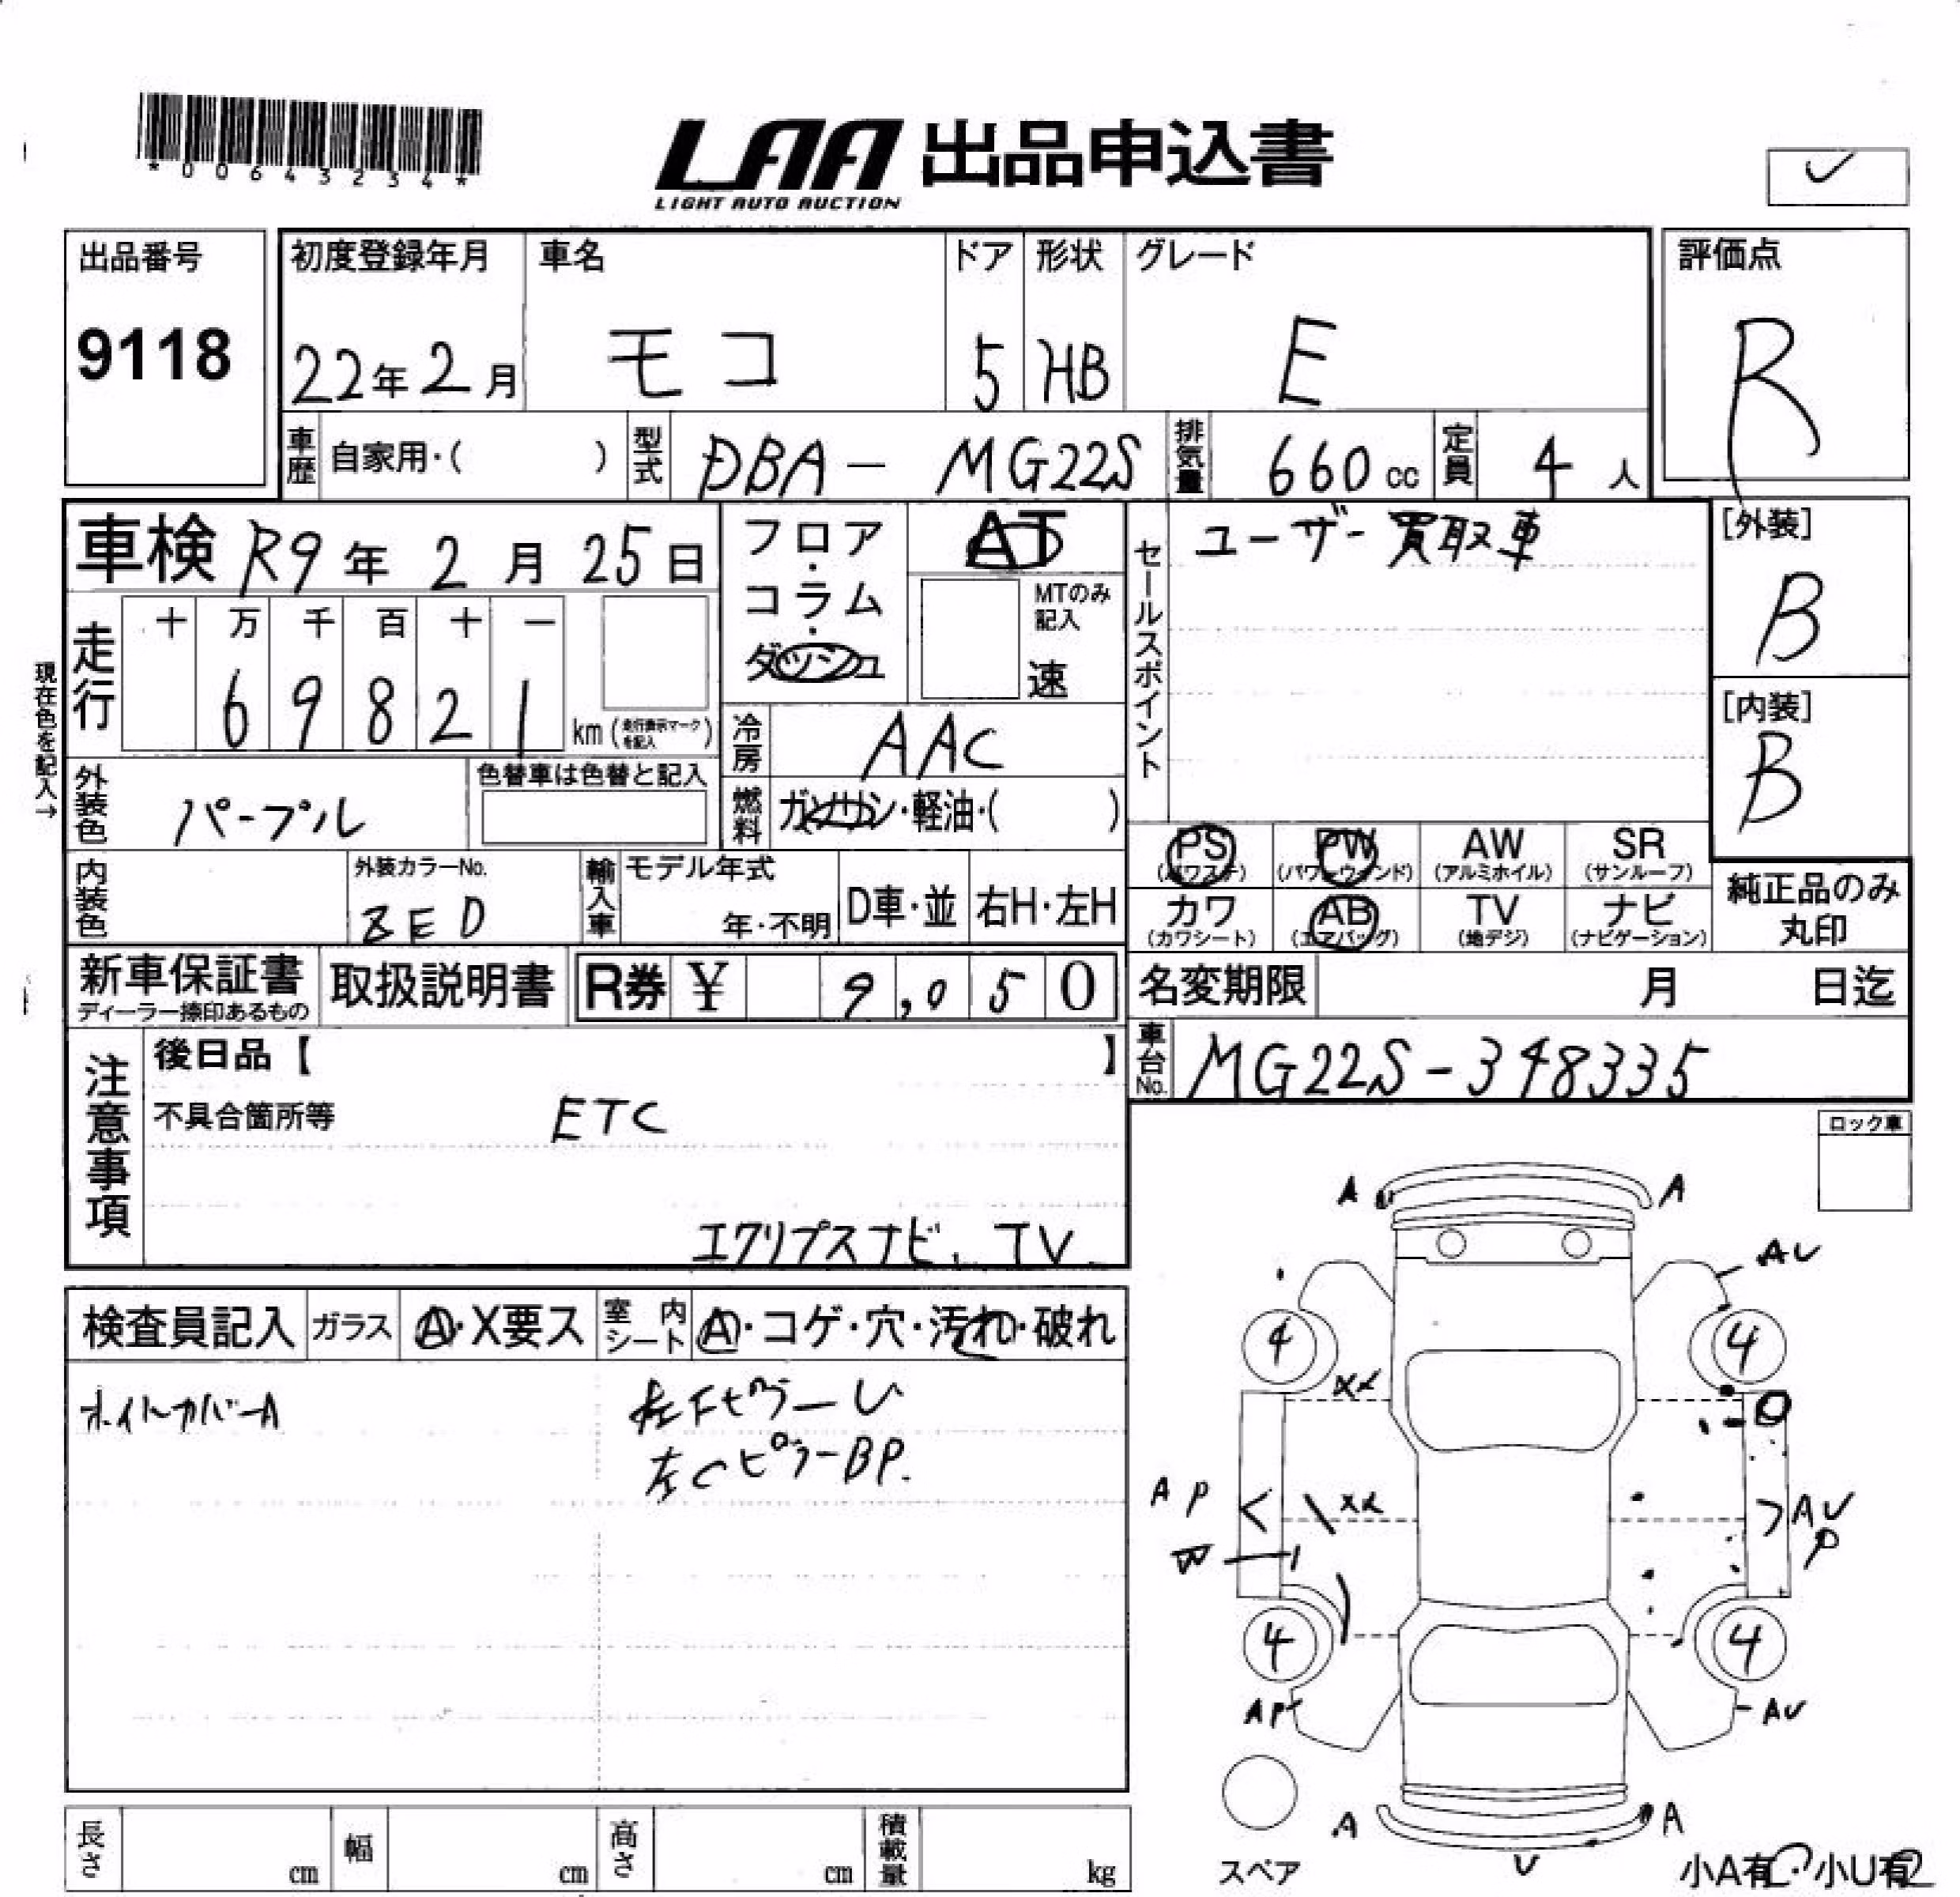 *00643234*
LAA 出品申込書
LIGHT AUTO AUCTION
出品番号
9118
初度登録年月 車名 ドア 形状 グレード
22年2月 モコ 5 HB E
評価点
R
車歴 自家用・( ) 型式 DBA- MG22S 排気量 660cc 定員 4人
車検 R9年2月25日
フロア・コラム・ダッシュ
AT
MTのみ記入
速
セールスポイント
ユーザー買取車
[外装]
B
[内装]
B
現在色を記入→
走行 十 万 千 百 十 一
6 9 8 2 1 km (走行表示マークを記入)
冷房 AAC
外装色 パープル 色替車は色替と記入
燃料 ガソリン・軽油・( )
内装色 外装カラーNo. 輸入車 モデル年式
年・不明 D車・並 右H・左H
PS (パワステ) PW (パワーウィンド) AW (アルミホイル) SR (サンルーフ)
カワ (カワシート) AB (エアバッグ) TV (地デジ) ナビ (ナビゲーション)
純正品のみ丸印
新車保証書 ディーラー捺印あるもの 取扱説明書 R券 ¥ 9,050
名変期限 月 日迄
車台No. MG22S-348335
注意事項
後日品【 】
不具合箇所等 ETC
エクリプスナビ、TV
ロック車
検査員記入 ガラス A・X要ス 室内シート A・コゲ・穴・汚れ・破れ
ホイルカバーA
左FピラーU
左CピラーBP.
A A
AU
4 4
XX
AP XX AU
P
W
4 4
AP AU
A A
U
スペア
小A有・小U有
長さ cm 幅 cm 高さ cm 積載量 kg